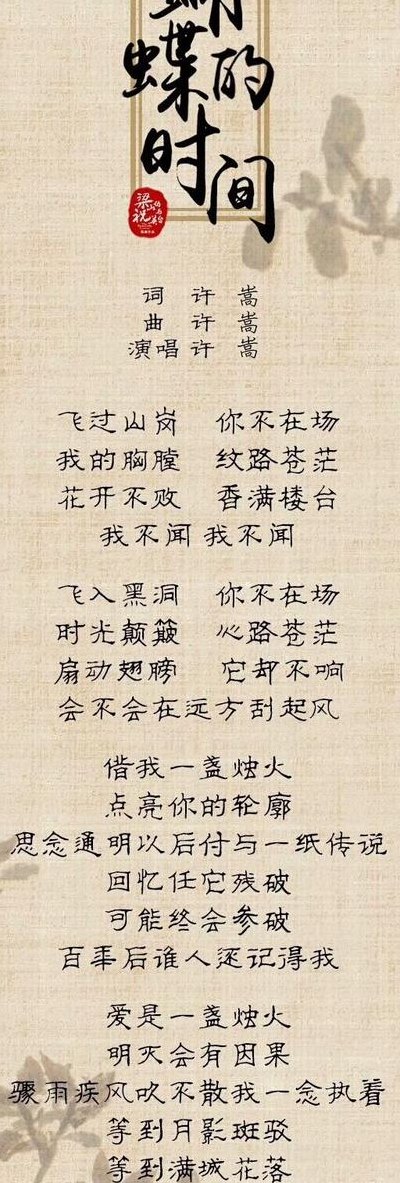 蝴
蝶的
时间
梁祝
词 许 嵩
曲 许 嵩
演唱 许 嵩
飞过山岗 你不在场
我的胸膛 纹路苍茫
花开不败 香满楼台
我不闻 我不闻
飞入黑洞 你不在场
时光颠簸 心路苍茫
扇动翅膀 它却不响
会不会在远方刮起风
借我一盏烛火
点亮你的轮廓
思念通明以后付与一纸传说
回忆任它残破
可能终会参破
百年后谁人还记得我
爱是一盏烛火
明灭会有因果
骤雨疾风吹不散我一念执着
等到月影斑驳
等到满城花落